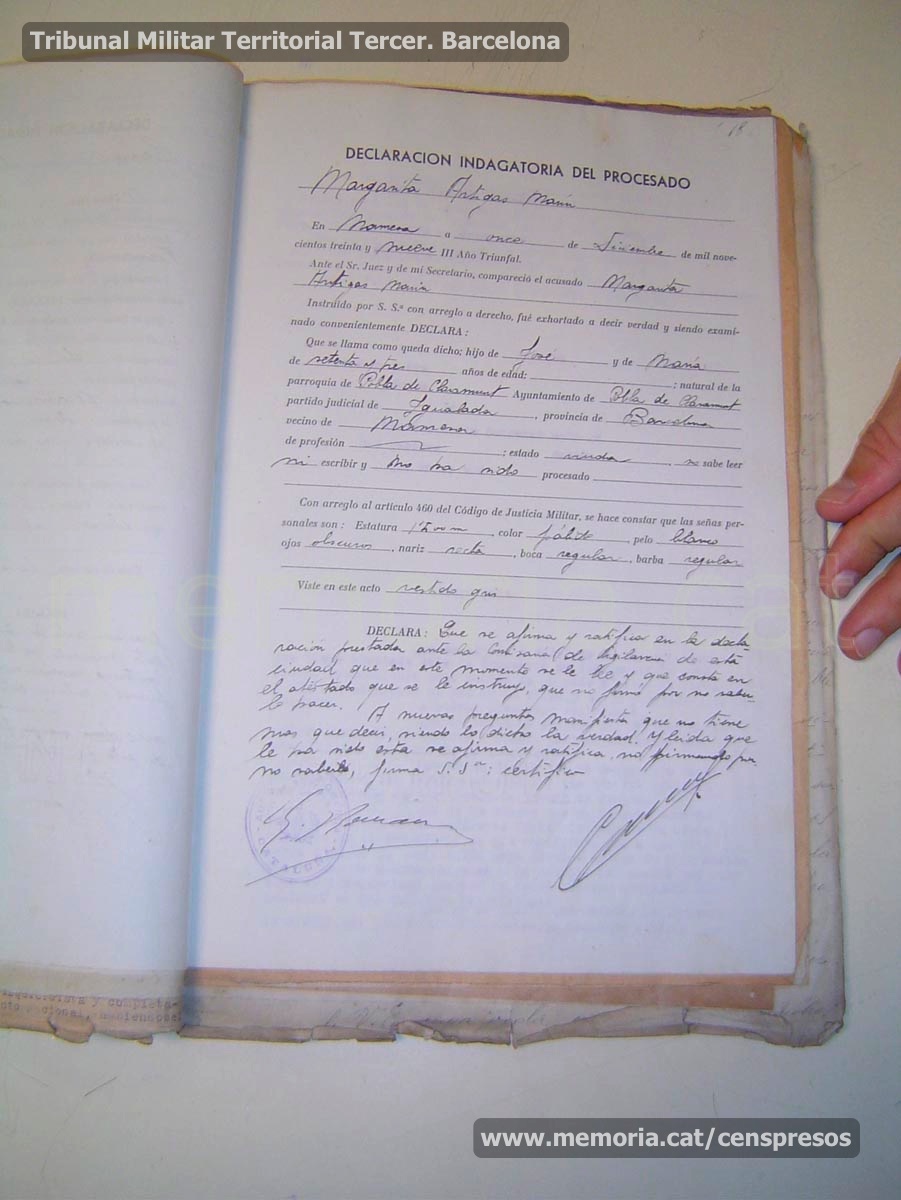 Tribunal Militar Territorial Tercer. Barcelona
18
DECLARACION INDAGATORIA DEL PROCESADO
Margarita Artigas Marin
En Manresa a once de Diciembre de mil nove-
cientos treinta y nueve III Año Triunfal.
Ante el Sr. Juez y de mi Secretario, compareció el acusado Margarita
Artigas Marin
Instruido por S. S.ª con arreglo a derecho, fué exhortado a decir verdad y siendo exami-
nado convenientemente DECLARA :
Que se llama como queda dicho; hijo de José y de Maria
de setenta y tres años de edad: ; natural de la
parroquia de Pobla de Claramunt Ayuntamiento de Pbla de Claramunt
partido judicial de Igualada , provincia de Barcelona
vecino de Manresa
de profesión ; estado viuda , no sabe leer
ni escribir y no ha sido procesado
Con arreglo al artículo 460 del Código de Justicia Militar, se hace constar que las señas per-
sonales son : Estatura 1'500 m , color pálido , pelo blanco
ojos obscuros , nariz recta , boca regular , barba regular
Viste en este acto vestido gris
DECLARA : Que se afirma y ratifica en la decla-
ración prestada ante la Comisaria de Vigilancia de esta
ciudad que en este momento se le lee y que consta en
el atestado que se le instruyo, que no firma por no saber-
lo hacer. A nuevas preguntas manifiesta que no tiene
mas que decir, siendo lo dicho la verdad. Y leida que
le ha sido esta se afirma y ratifica, no firmando por
no saberlo, firma S. Sª: certifico
www.memoria.cat/censpresos